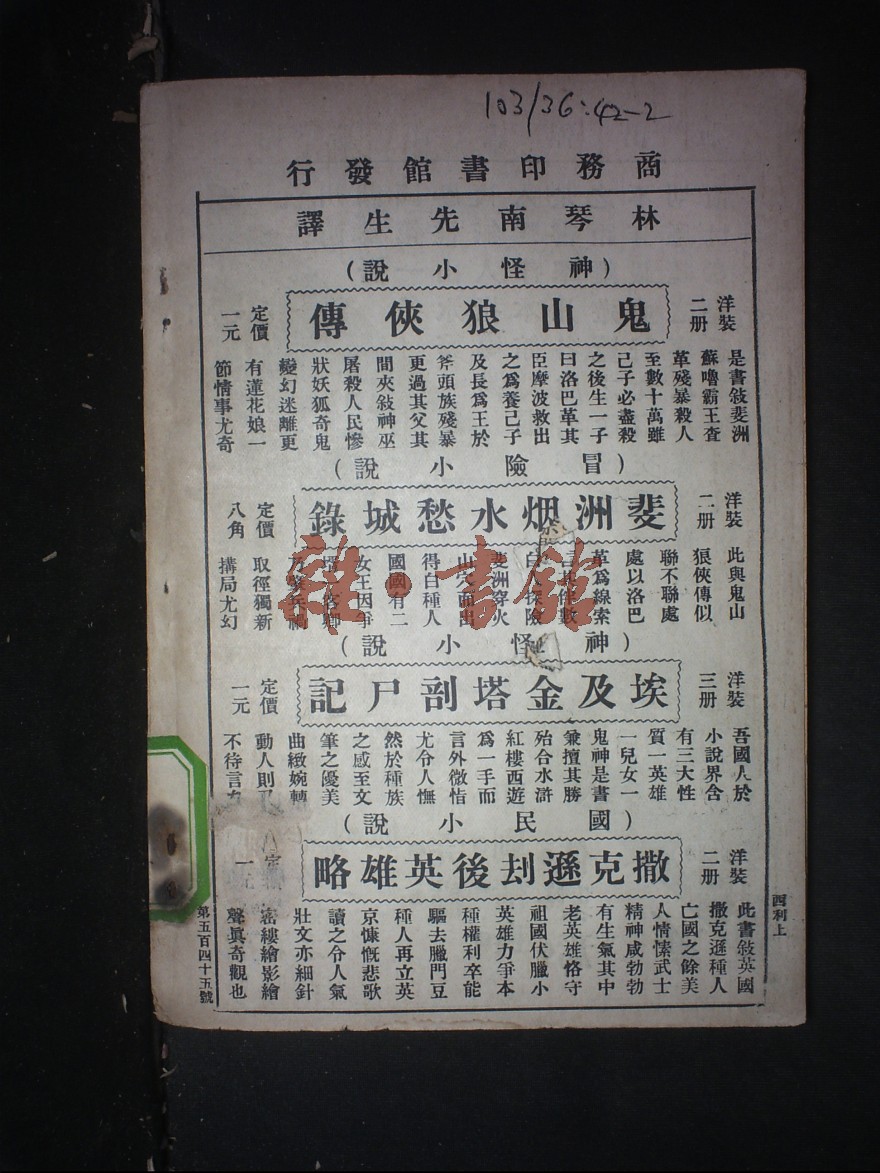 103/36:42-2
商務印書館發行
林琴南先生譯
(神怪小說)
洋裝
二册
鬼山狼俠傳
定價
一元
是書敍斐洲
蘇嚕霸王查
革殘暴殺人
至數十萬雖
己子必盡殺
之後生一子
曰洛巴革其
臣摩波救出
之爲養己子
及長爲王於
斧頭族殘暴
更過其父其
間夾敍神巫
屠殺人民慘
狀妖狐奇鬼
變幻迷離更
有蓮花娘一
節情事尤奇
(冒險小說)
洋裝
二册
斐洲烟水愁城錄
定價
八角
此與鬼山
狼俠傳似
聯不聯處
處以洛巴
革爲線索
言其伴數
白人探險
斐洲穿火
山穴而出
得白種人
國國有二
女王因爭
取徑獨新
搆局尤幻
(神怪小說)
洋裝
三册
埃及金塔剖尸記
定價
一元
吾國人於
小說界含
有三大性
質一英雄
一兒女一
鬼神是書
兼擅其勝
殆合水滸
紅樓西遊
爲一手而
言外微恉
尤令人憮
然於種族
之感至文
筆之優美
曲緻婉轉
動人則
不待言
(國民小說)
洋裝
二册
撒克遜刦後英雄略
定
一元
此書敍英國
撒克遜種人
亡國之餘美
人情愫武士
精神咸勃勃
有生氣其中
老英雄恪守
祖國伏臘小
英雄力爭本
種權利卒能
驅去臘門豆
種人再立英
京慷慨悲歌
讀之令人氣
壯文亦細針
密縷繪影繪
聲眞奇觀也
酉利上
第五百四十五號
雜·書館